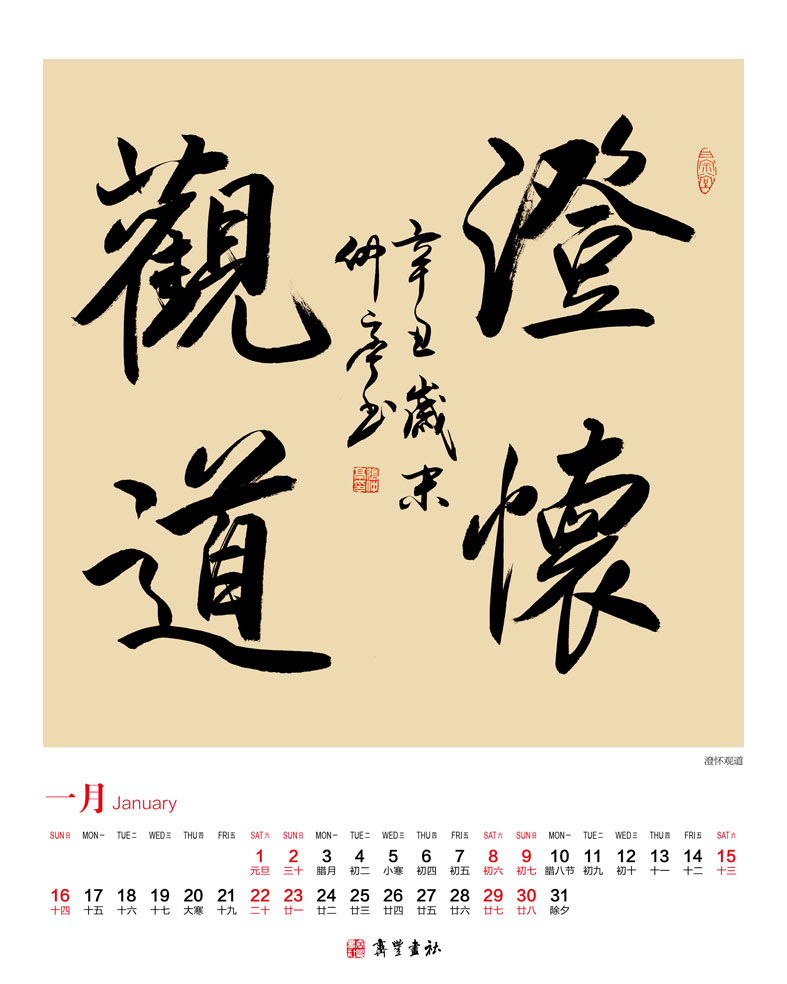 澄懷
觀道
辛丑歲末
仲亭书
澄怀观道
一月 January
SUN日 MON一 TUE二 WED三 THU四 FRI五 SAT六 SUN日 MON一 TUE二 WED三 THU四 FRI五 SAT六 SUN日 MON一 TUE二 WED三 THU四 FRI五 SAT六
1 2 3 4 5 6 7 8 9 10 11 12 13 14 15
元旦 三十 腊月 初二 小寒 初四 初五 初六 初七 腊八节 初九 初十 十一 十二 十三
16 17 18 19 20 21 22 23 24 25 26 27 28 29 30 31
十四 十五 十六 十七 大寒 十九 二十 廿一 廿二 廿三 廿四 廿五 廿六 廿七 廿八 除夕
齊豐畫社